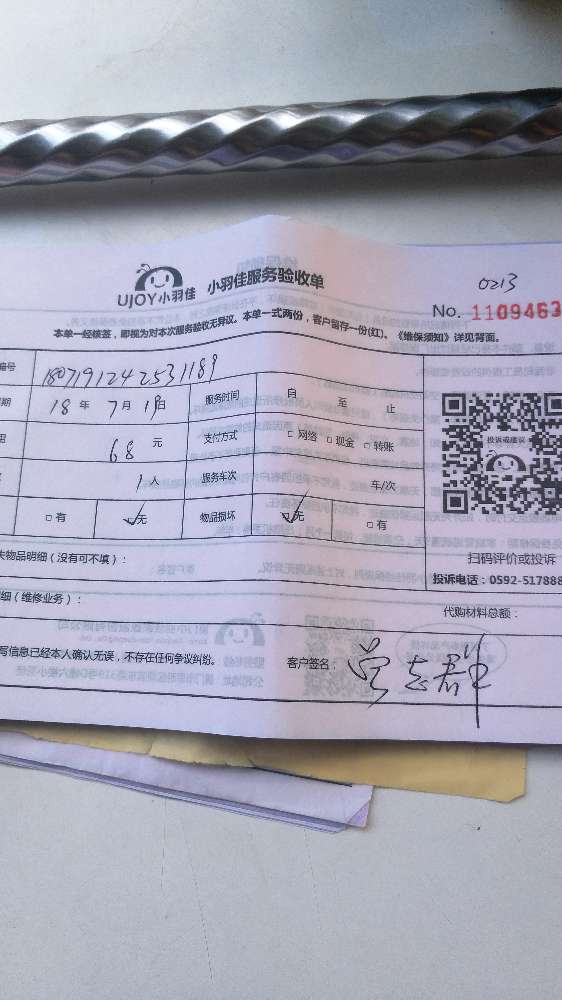 UJOY小羽佳 小羽佳服务验收单
0213
No. 1109463
本单一经核签，即视为对本次服务验收无异议。本单一式两份，客户留存一份(红)。《维保须知》详见背面。
编号 1807191242531189
期 18 年 7 月 19日 服务时间 自 至 止
68 元 支付方式 □ 网络 □ 现金 □ 转账
1 人 服务车次 车/次
□ 有 ☑无 物品损坏 ☑无 □ 有
投诉或建议
扫码评价或投诉
失物品明细（没有可不填）：
投诉电话：0592-517888
细（维修业务）：
代购材料总额：
写信息已经本人确认无误，不存在任何争议纠纷。
客户签名：